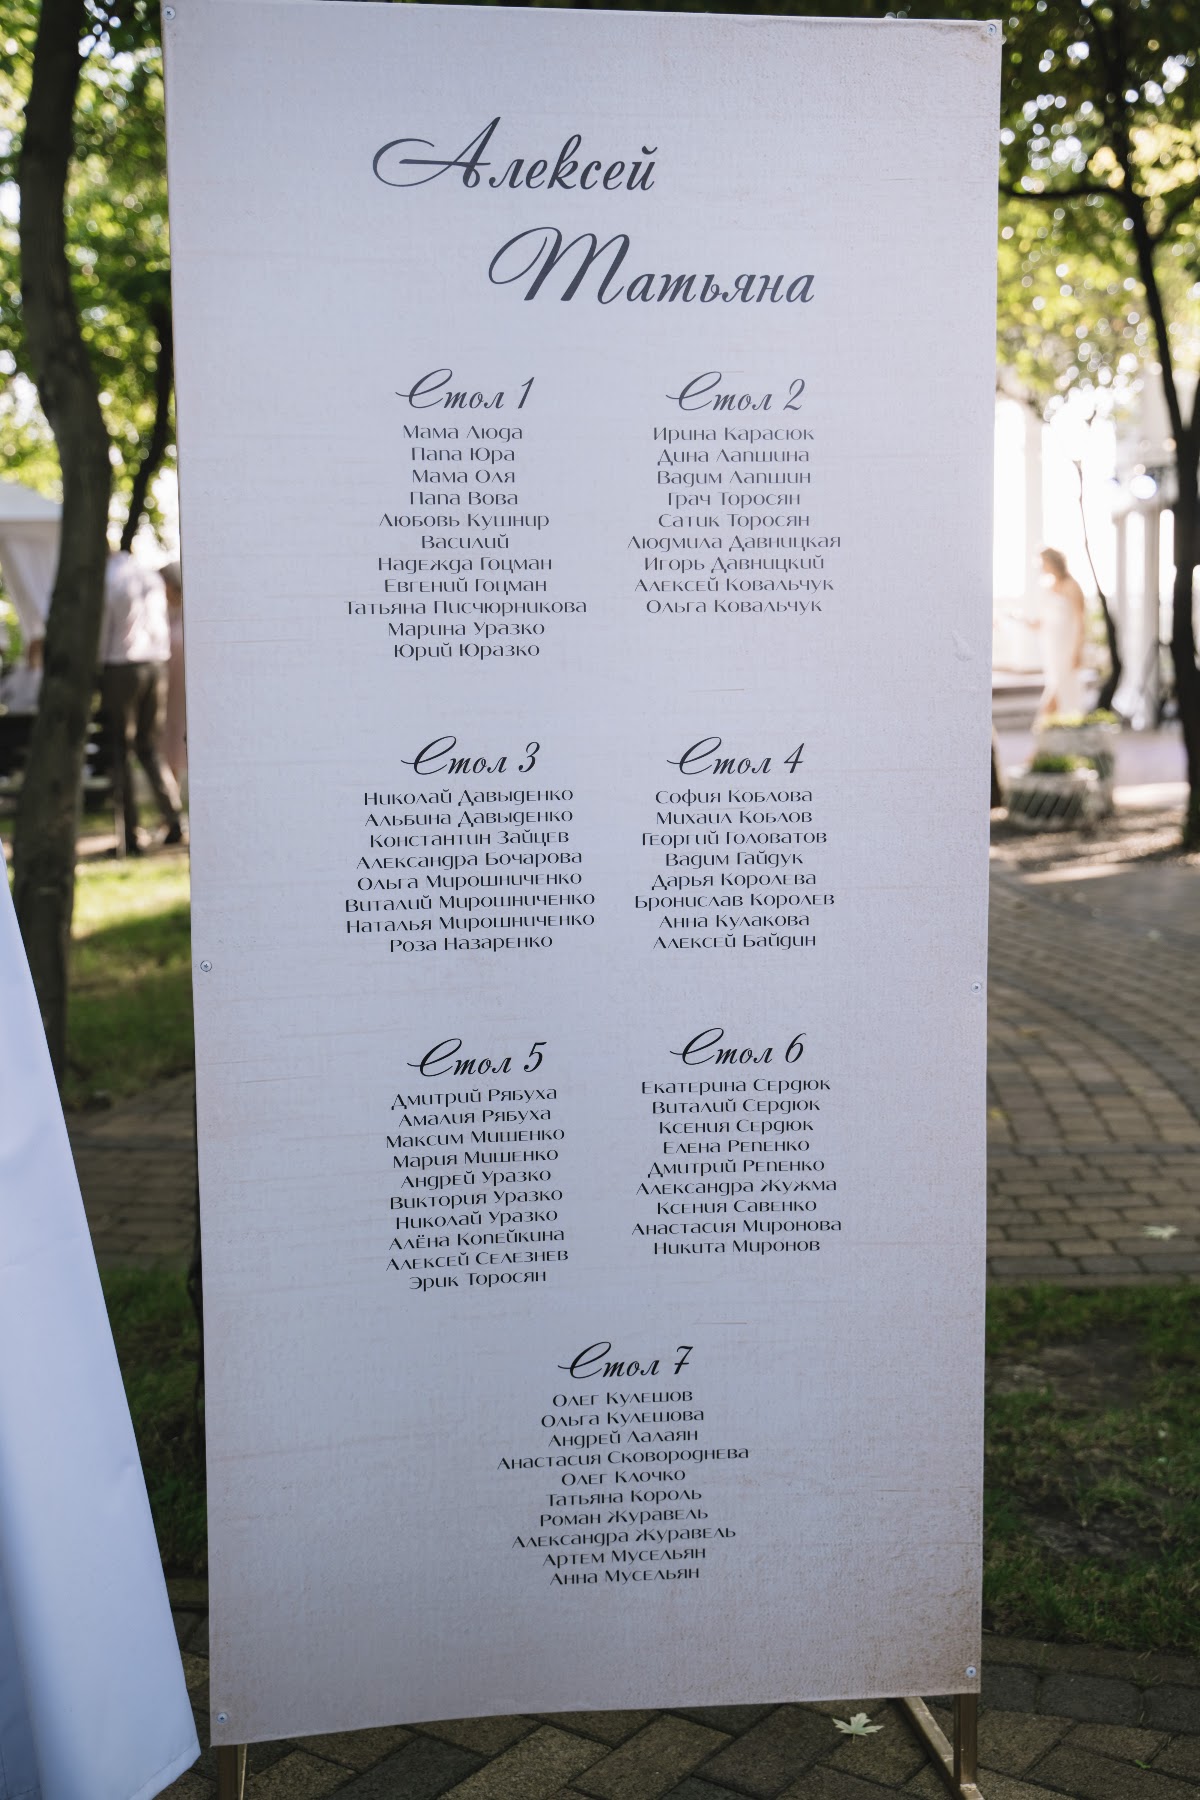 Алексей
Татьяна
Стол 1
Мама Люда
Папа Юра
Мама Оля
Папа Вова
Любовь Кушнир
Василий
Надежда Гоцман
Евгений Гоцман
Татьяна Писчюрникова
Марина Уразко
Юрий Юразко
Стол 2
Ирина Карасюк
Дина Лапшина
Вадим Лапшин
Грач Торосян
Сатик Торосян
Людмила Давницкая
Игорь Давницкий
Алексей Ковальчук
Ольга Ковальчук
Стол 3
Николай Давыденко
Альбина Давыденко
Константин Зайцев
Александра Бочарова
Ольга Мирошниченко
Виталий Мирошниченко
Наталья Мирошниченко
Роза Назаренко
Стол 4
София Коблова
Михаил Коблов
Георгий Головатов
Вадим Гайдук
Дарья Королева
Бронислав Королев
Анна Кулакова
Алексей Байдин
Стол 5
Дмитрий Рябуха
Амалия Рябуха
Максим Мишенко
Мария Мишенко
Андрей Уразко
Виктория Уразко
Николай Уразко
Алёна Копейкина
Алексей Селезнев
Эрик Торосян
Стол 6
Екатерина Сердюк
Виталий Сердюк
Ксения Сердюк
Елена Репенко
Дмитрий Репенко
Александра Жужма
Ксения Савенко
Анастасия Миронова
Никита Миронов
Стол 7
Олег Кулешов
Ольга Кулешова
Андрей Лалаян
Анастасия Сковороднева
Олег Клочко
Татьяна Король
Роман Журавель
Александра Журавель
Артем Мусельян
Анна Мусельян